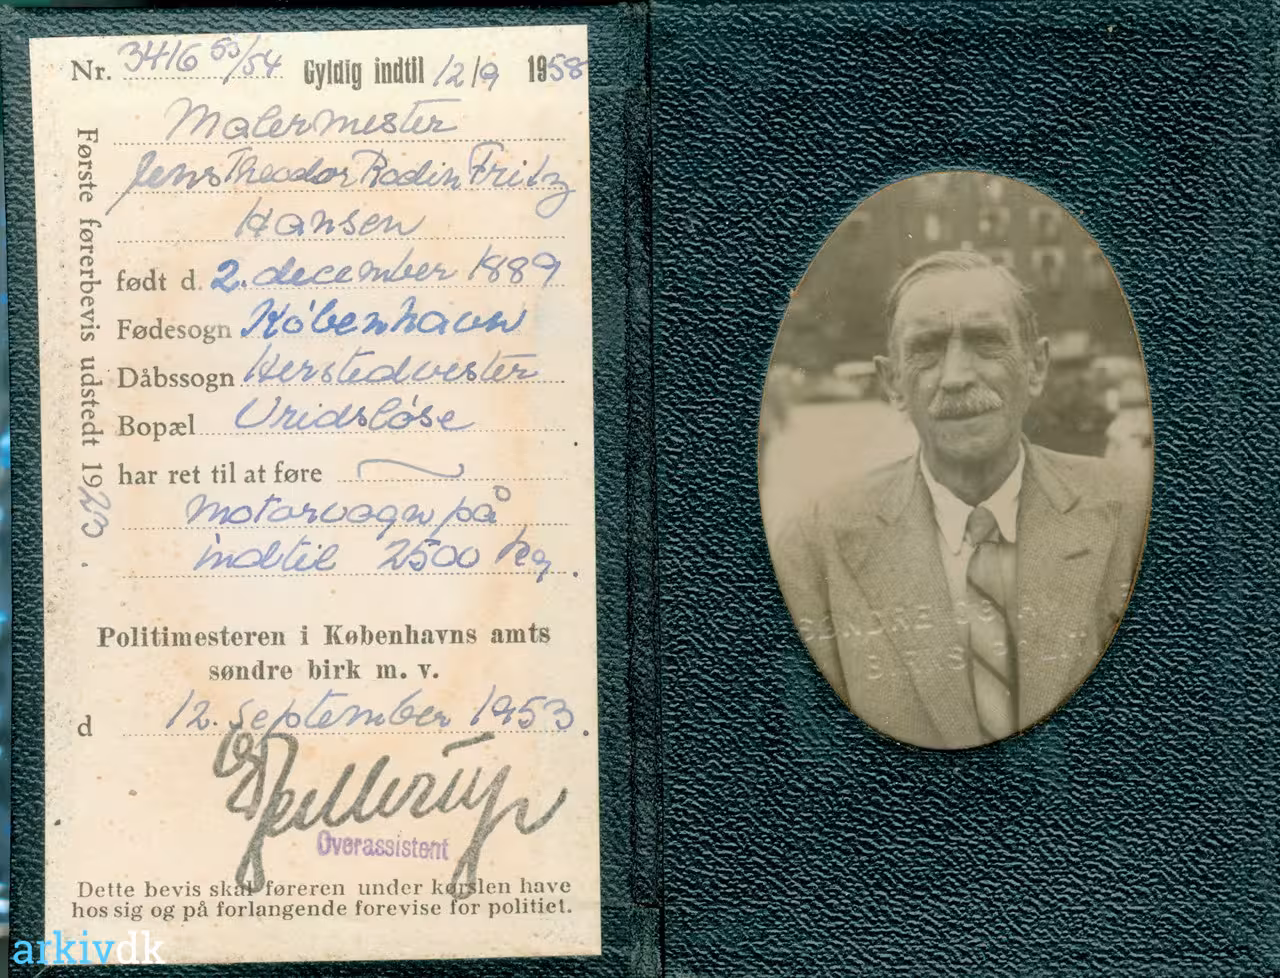 Nr. 3416 53/54 Gyldig indtil 12/9 1958
Malermester
Jens Theodor Rodin Fritz
Hansen
født d. 2. december 1889
Fødesogn København
Dåbssogn Herstedvester
Bopæl Vridsløse
har ret til at føre
motorvogn på
indtil 2500 kg.
Første førerbevis udstedt 1923.
Politimesteren i Københavns amts
søndre birk m. v.
d 12. september 1953.
Overassistent
Dette bevis skal føreren under kørslen have
hos sig og på forlangende forevise for politiet.
arkivdk